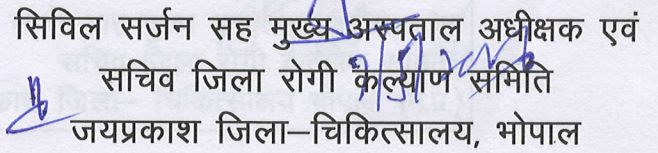 सिविल सर्जन सह मुख्य अस्पताल अधीक्षक एवं
सचिव जिला रोगी कल्याण समिति
जयप्रकाश जिला–चिकित्सालय, भोपाल